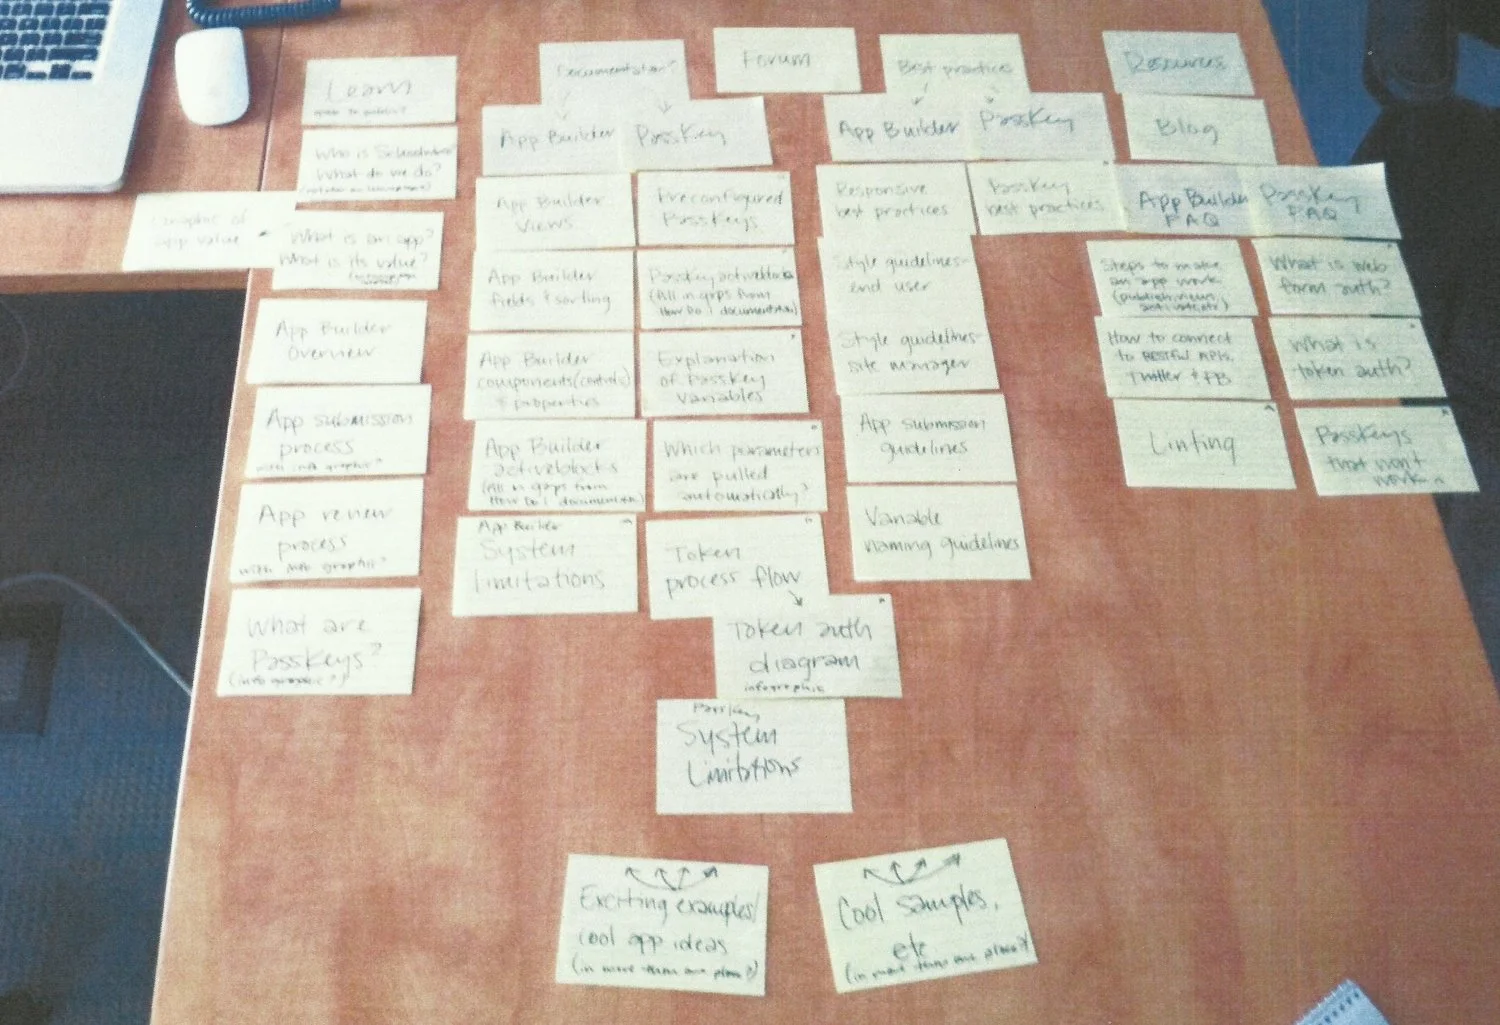 Learn
Documentation?
Forum
Best practices
Resources
App Builder
PassKey
App Builder
PassKey
Blog
Who is
What do we do?
Graphic of
app value
What is an app?
What is its value?
App Builder
Views
Preconfigured
PassKeys
Responsive
best practices
PassKey
best practices
App Builder
FAQ
PassKey
FAQ
App Builder
Overview
App Builder
fields + sorting
PassKey activeblocks
(fill in gaps from
How Do I documentation)
Style guidelines-
end user
Steps to make
an app work
What is web
form auth?
App submission
process
with info graphic?
App Builder
components (controls)
+ properties
Explanation
of PassKey
Variables
Style guidelines-
site manager
How to connect
to RESTful APIs,
Twitter + FB
What is
token auth?
App review
process
with info graphic?
App Builder
activeblocks
(fill in gaps from
How Do I documentation)
Which parameters
are pulled
automatically?
App submission
guidelines
Linting
PassKeys
that won't
work
What are
PassKeys?
(info graphic?)
App Builder
System
limitations
Token
process flow
Variable
naming guidelines
Token auth
diagram
infographic
PassKey
System
Limitations
Exciting examples/
cool app ideas
(in more than one place?)
Cool samples,
etc
(in more than one place?)